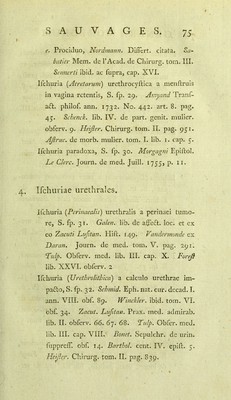 SAUVAGES. 75
e. Prociduo, Nordmann. Differt. citata. Sa-
batier Mem. de l'Acad. de Chirurg. tom. III.
Sennerti ibid. ac supra, cap. XVI.
Ischuria (Aeretorum) urethrocystica a menstruis
in vagina retentis, S. sp. 29. Amyand Trans-
act. philos. ann. 1732. No. 442. art. 8. pag.
45. Schenck. lib. IV. de part. genit. mulier.
observ. 9. Heister. Chirurg. tom. II. pag. 951.
Astruc. de morb. mulier. tom. I. lib. 1. cap. 5.
Ischuria paradoxa, S. sp. 30. Morgagni Epistol.
Le Clerc. Journ. de med. Juill. 1755, p. 11.
4. Ischuriae urethrales.
Ischuria (Perinaealis) urethralis a perinaei tumo-
re, S. sp. 31. Galen. lib. de affect. loc. et ex
eo Zacuti Lusitan. Hist. 149. Vandermonde ex
Daran. Journ. de med. tom. V. pag. 291.
Tulp. Observ. med. lib. III. cap. X. Forest
lib. XXVI. observ. 2
Ischuria (Urethrolithica) a calculo urethrae im-
pacto, S. sp. 32. Schmid. Eph. nat. eur. decad. I.
ann. VIII. obs. 89. Winckler. ibid. tom. VI.
obs. 34. Zacut. Lusitan. Prax. med. admirab.
lib. II. observ. 66. 67. 68. Tulp. Obser. med.
lib. III. cap. VIII. Bonet. Sepulchr. de urin.
suppress. obs. 14. Barthol. cent. IV. epist. 5.
Heister. Chirurg. tom. II. pag. 839.